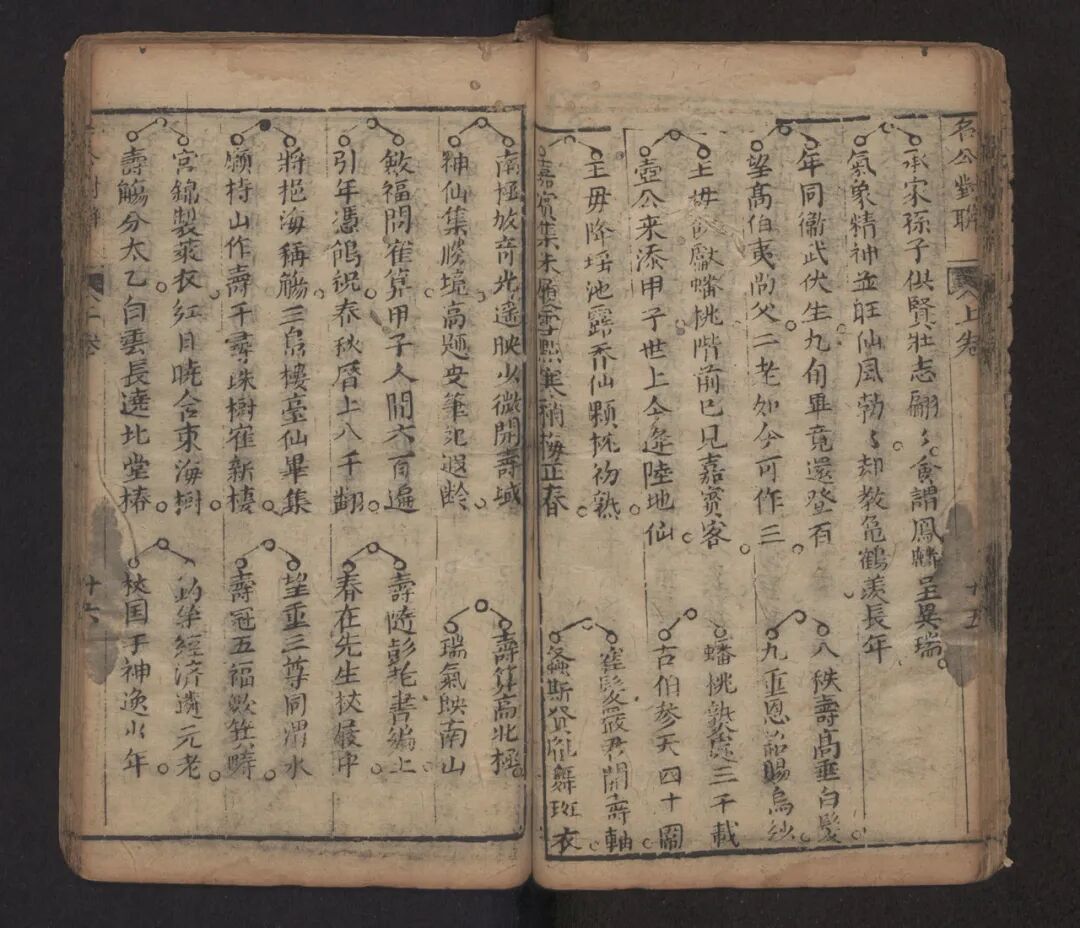 名公對聯
上卷
十五
承家孫子俱賢壯志翩〻僉謂鳳麟呈異瑞
氣象精神並旺仙風勃〻却教亀鶴羨長年
年同衛武伏生九旬畢竟還登百
望高伯夷尚父二老如今可作三
八秩壽高垂白髮
九重恩詔賜烏紗
王母 獻蟠桃階前已見嘉賓客
壺公来添甲子世上今逢陸地仙
蟠桃熟 三千載
古伯參天四十圍
王母降瑶池露 仙顆桃初熟
嘉賓集 寒 梅正春
鶴髮 君開壽軸
螽斯 舞斑衣
南極放奇光遥映少微開壽域
神仙集勝境高題史筆 遐齡
壽算高北極
瑞氣映南山
斂福問崔算甲子人間六百遍
引年憑鳩祝春秋曆上八千翻
壽隨彭老書編上
春在先生杖屨中
將挹海稱觴三島樓臺仙畢集
願持山作壽千尋珠樹崔新棲
望重三尊同渭水
壽冠五福敷箕疇
宮錦製萊衣紅日曉含東海樹
壽觴分太乙白雲長遶北堂椿
經済遺元老
杖国 神逸少年
十六